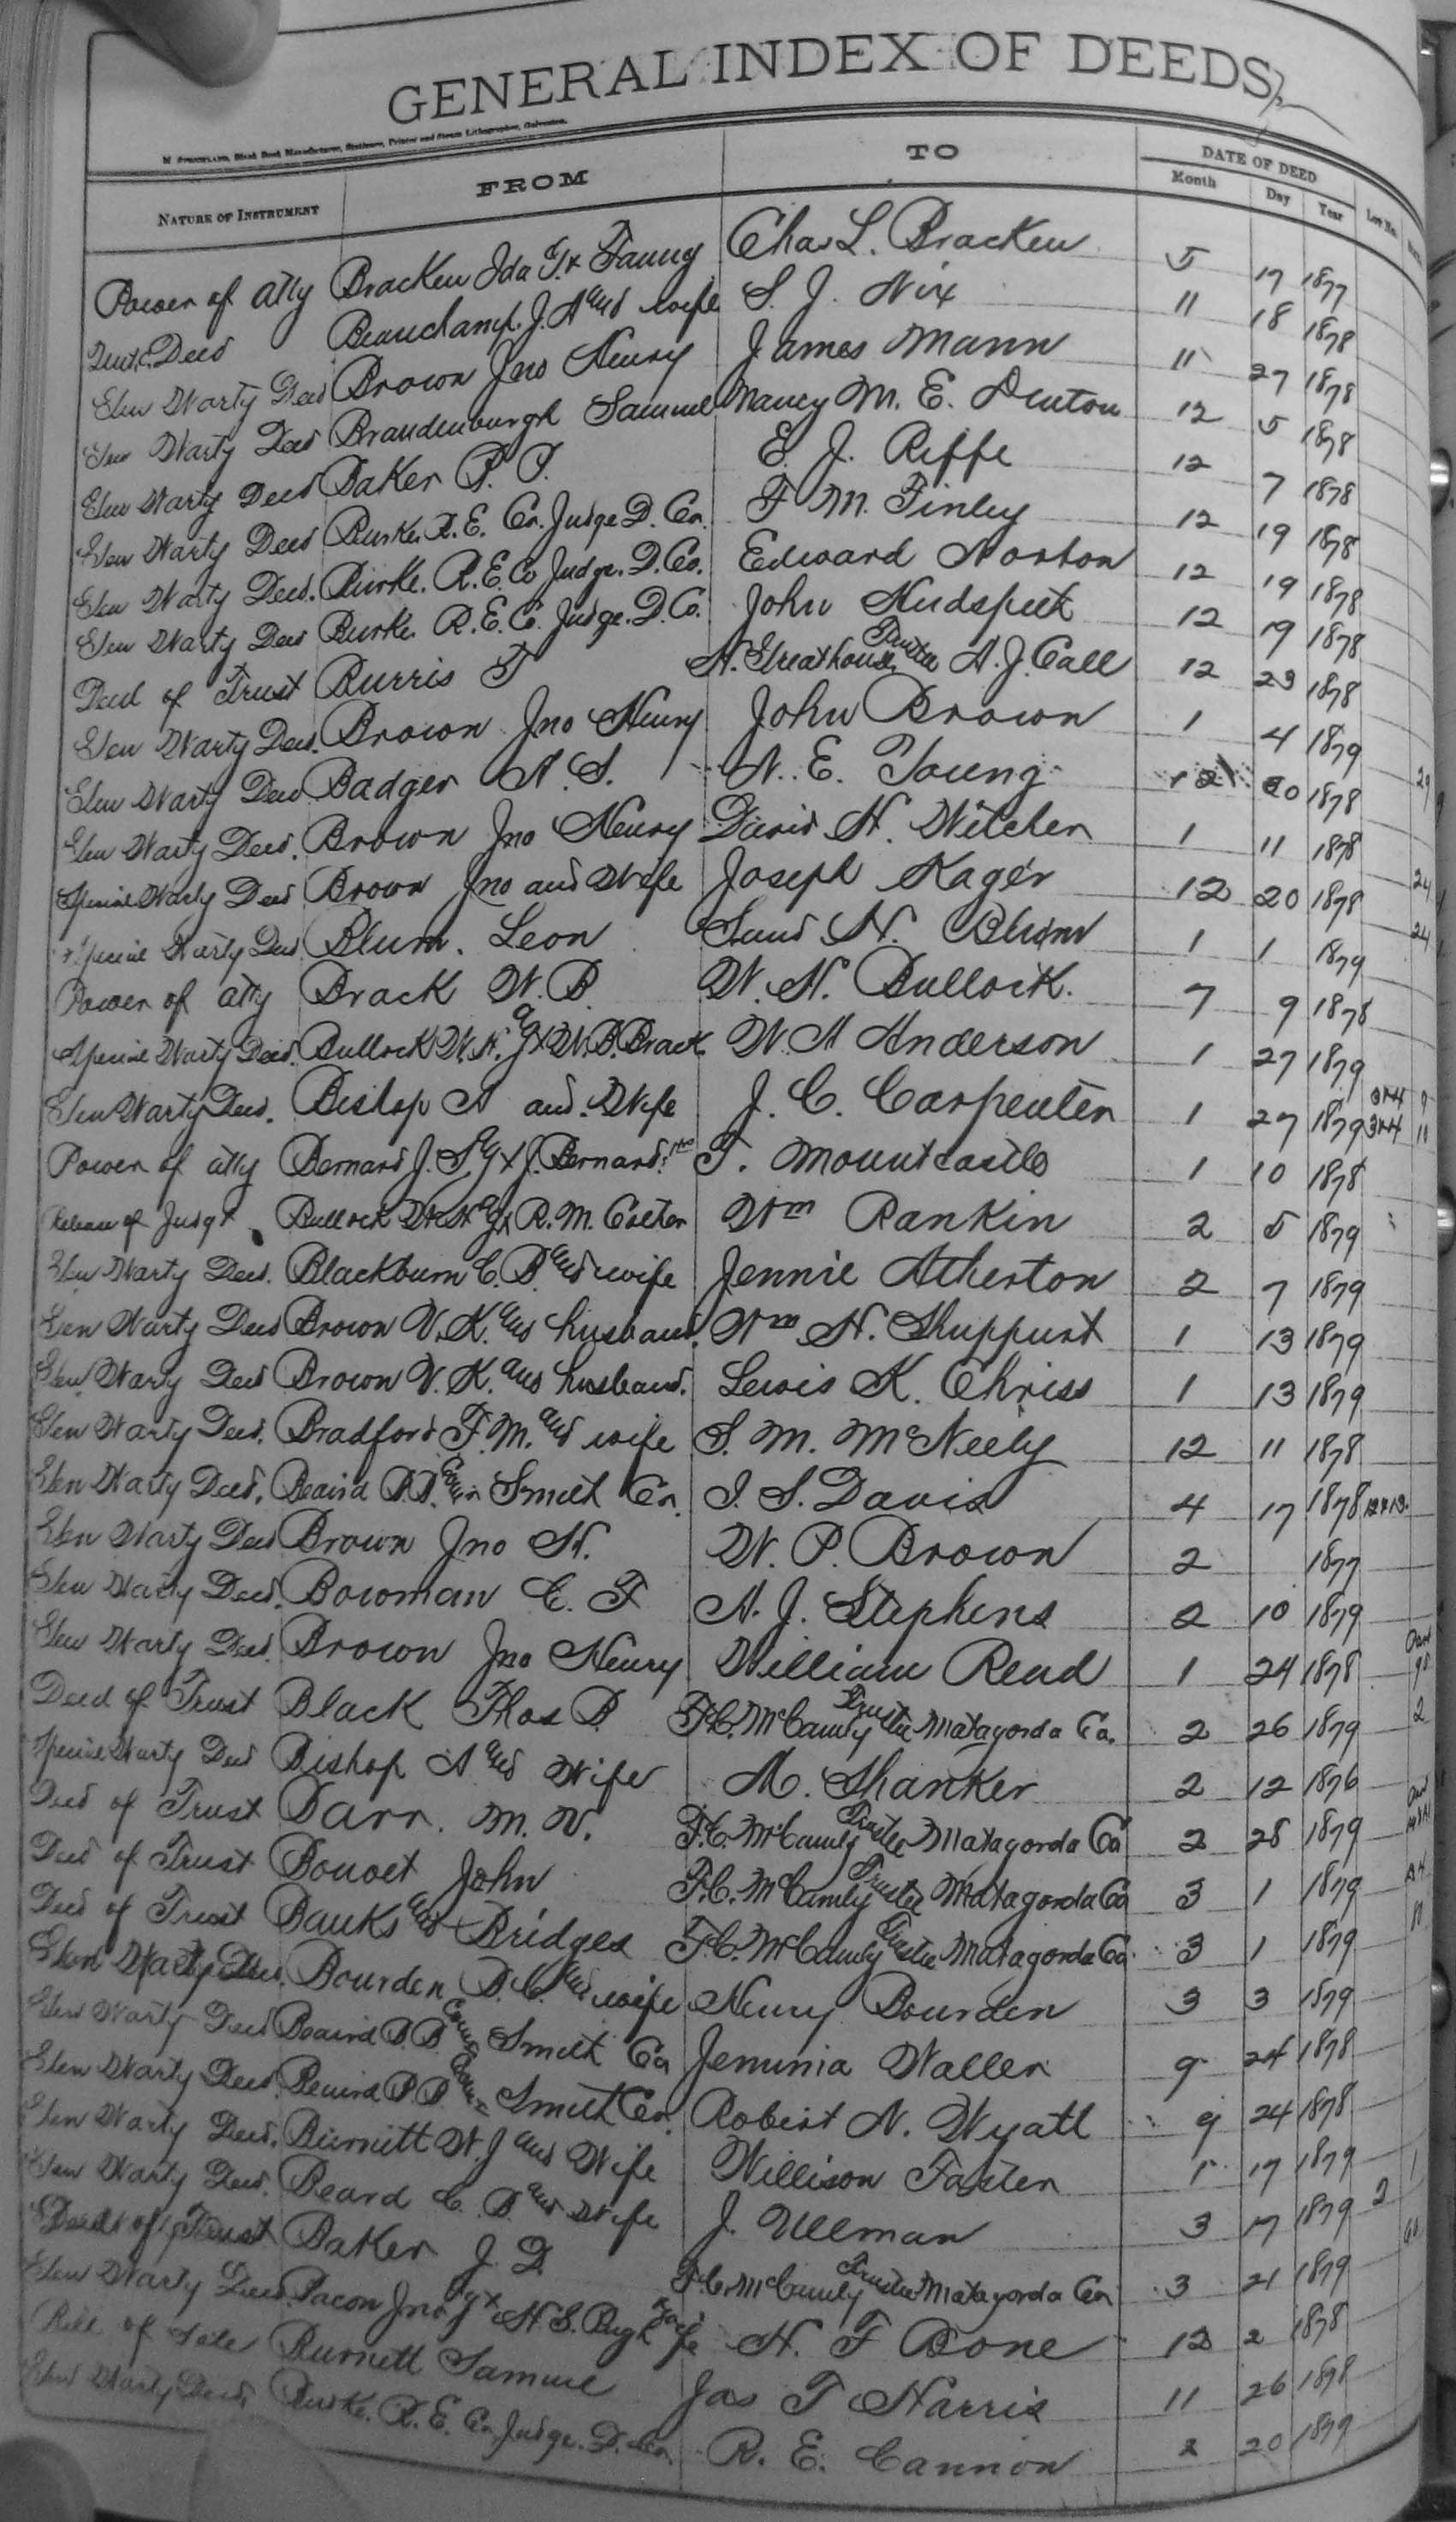 GENERAL INDEX OF DEEDS,
NATURE OF INSTRUMENT FROM TO DATE OF DEED
Month Day Year Lot No.
Power of Atty Bracken Ida G. & Fanny Chas L. Bracken 5 17 1877
Deed Beauchamp J. A and wife S. J. Nix 11 18 1878
Gen Warty Deed Brown Jno Henry James Mann 11 27 1878
Gen Warty Deed Brandenburgh Samuel Nancy M. E. Denton 12 5 1878
Gen Warty Deed Baker P. P. E. J. Riffe 12 7 1878
Gen Warty Deed Burke R. E. Co. Judge D. Co. F M. Finley 12 19 1878
Gen Warty Deed. Burke. R. E. Co Judge. D. Co. Edward Norton 12 19 1878
Gen Warty Deed Burke. R. E. Co. Judge. D. Co. John Hudspeth 12 19 1878
Deed of Trust Burris T H. Greathouse Trustee A. J. Call 12 23 1878
Gen Warty Deed. Brown Jno Henry John Brown 1 4 1879
Gen Warty Deed Badger A. S. N. E. Young 12 1878
Gen Warty Deed. Brown Jno Henry David H. Witcher 1 11 1878
Special Warty Deed Brown Jno and Wife Joseph Kager 12 20 1878
Special Warty Deed Blum. Leon H. Blum 1 1 1879
Power of Atty Brack W. B. W. H. Bullock. 7 9 1878
Special Warty Deed. Bullock W. H. agt W. B. Brack W. A Anderson 1 27 1879
Gen Warty Deed. Bishop A and Wife J. C. Carpenter 1 27 1879 3&4
Power of Atty Bernard J. S. agt J. Bernard T. Mountcastle 1 10 1878
Release of Judgt Bullock W. H agt R. M. Wm Rankin 2 5 1879
Gen Warty Deed. Blackburn C. B and wife Jennie Atherton 2 7 1879
Gen Warty Deed Brown V. K. and husband. Wm H. Shuppurt 1 13 1879
Gen Warty Deed Brown V. K. and husband. Lewis K. Chriss 1 13 1879
Gen Warty Deed. Bradford F. M. and wife S. M. McNeely 12 11 1878
Gen Warty Deed. Beaird Smith Co. I. S. Davis 4 17 1878
Gen Warty Deed Brown Jno H. W. P. Brown 2 1877
Gen Warty Deed. Bowman C. F A. J. Stephens 2 10 1879
Gen Warty Deed. Brown Jno Henry William Read 1 24 1878
Deed of Trust Black Thos B. Trustee Matagorda Co. 2 26 1879
Special Warty Deed Bishop A and Wife M. Shanker 2 12 1876
Deed of Trust Barr. M. V. Trustee Matagorda Co 2 28 1879
Deed of Trust John Trustee Matagorda Co 3 1 1879
Deed of Trust Banks and Bridges Trustee Matagorda Co 3 1 1879
Gen Warty Deed. Bourden B. C. and wife Henry Bourden 3 3 1879
Gen Warty Deed Beaird Smith Co Jemima Waller 9 24 1878
Gen Warty Deed. Beaird Smith Co. Robert N. Wyatt 9 24 1878
Gen Warty Deed. Burnett W. J and Wife Willison Foster 1 17 1879
Gen Warty Deed. Beard C. B and Wife J. Ullman 3 17 1879 2
Deed of Trust Baker J. D. Trustee Matagorda Co 3 21 1879
Gen Warty Deed. Bacon Jno agt H. F Bone 12 2 1878
Bill of Sale Burnett Samuel Jas T Harris 11 26 1878
Gen Warty Deed. Burke. R. E. Co Judge. D. Co. R. E. Cannon 2 20 1879